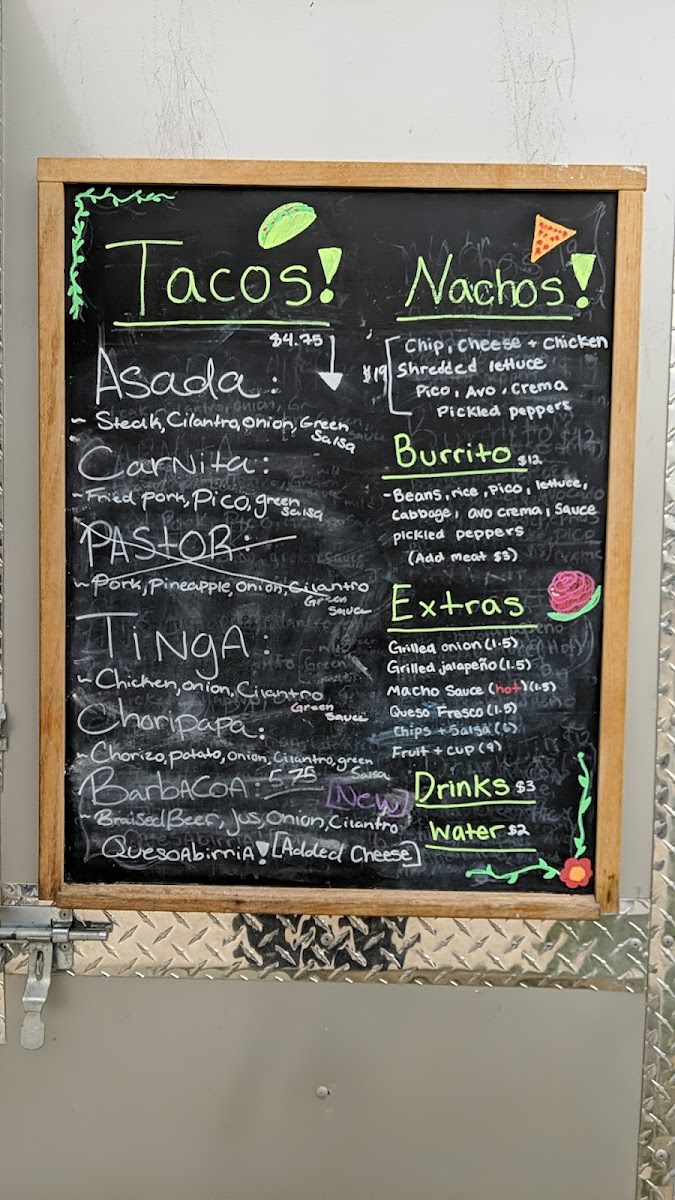 Tacos!
$4.75
Asada:
~ Steak, Cilantro, onion, Green
Salsa
Carnita:
~ Fried pork, Pico, green
Salsa
PAStOR:
~ Pork, Pineapple, onion, Cilantro
Green
Sauce
TiNgA:
~ Chicken, onion, Cilantro
Green
Sauce
Choripapa:
~ Chorizo, potato, onion, Cilantro, green
Salsa
BarbACOA: 5.75
[New]
~ Braised Beer, Jus, Onion, Cilantro
QuesoAbirriA! [Added Cheese]
Nachos!
$19
Chip, Cheese + Chicken
Shredded lettuce
Pico, Avo, Crema
Pickled peppers
Burrito $12
-Beans, rice, pico, lettuce,
Cabbage, avo crema, Sauce
pickled peppers
(Add meat $3)
Extras
Grilled onion (1.5)
Grilled jalapeño (1.5)
Macho Sauce (hot) (1.5)
Queso Fresco (1.5)
Chips + Salsa (6)
Fruit + cup (9)
Drinks $3
Water $2